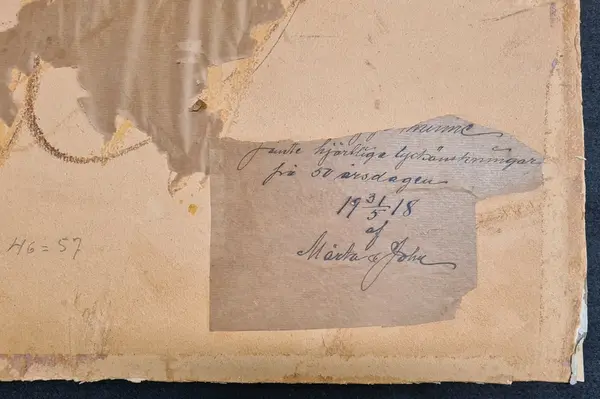 minne
jämte hjärtliga lyckönskningar
frå 50 årsdagen
19 31/5 18
af
Märta & John
46=57